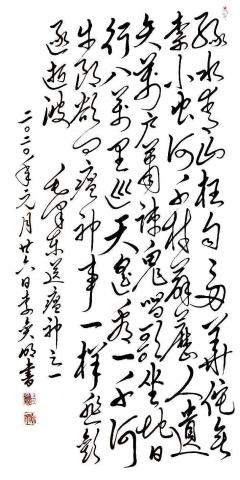 绿水青山枉自多華佗無
奈小虫何千村薜荔人遺
矢萬户蕭疎鬼唱歌坐地日
行八萬里巡天遥看一千河
牛郎欲问瘟神事一样悲歡
逐逝波 毛澤東送瘟神之一
二〇二〇年元月廿六日李明書